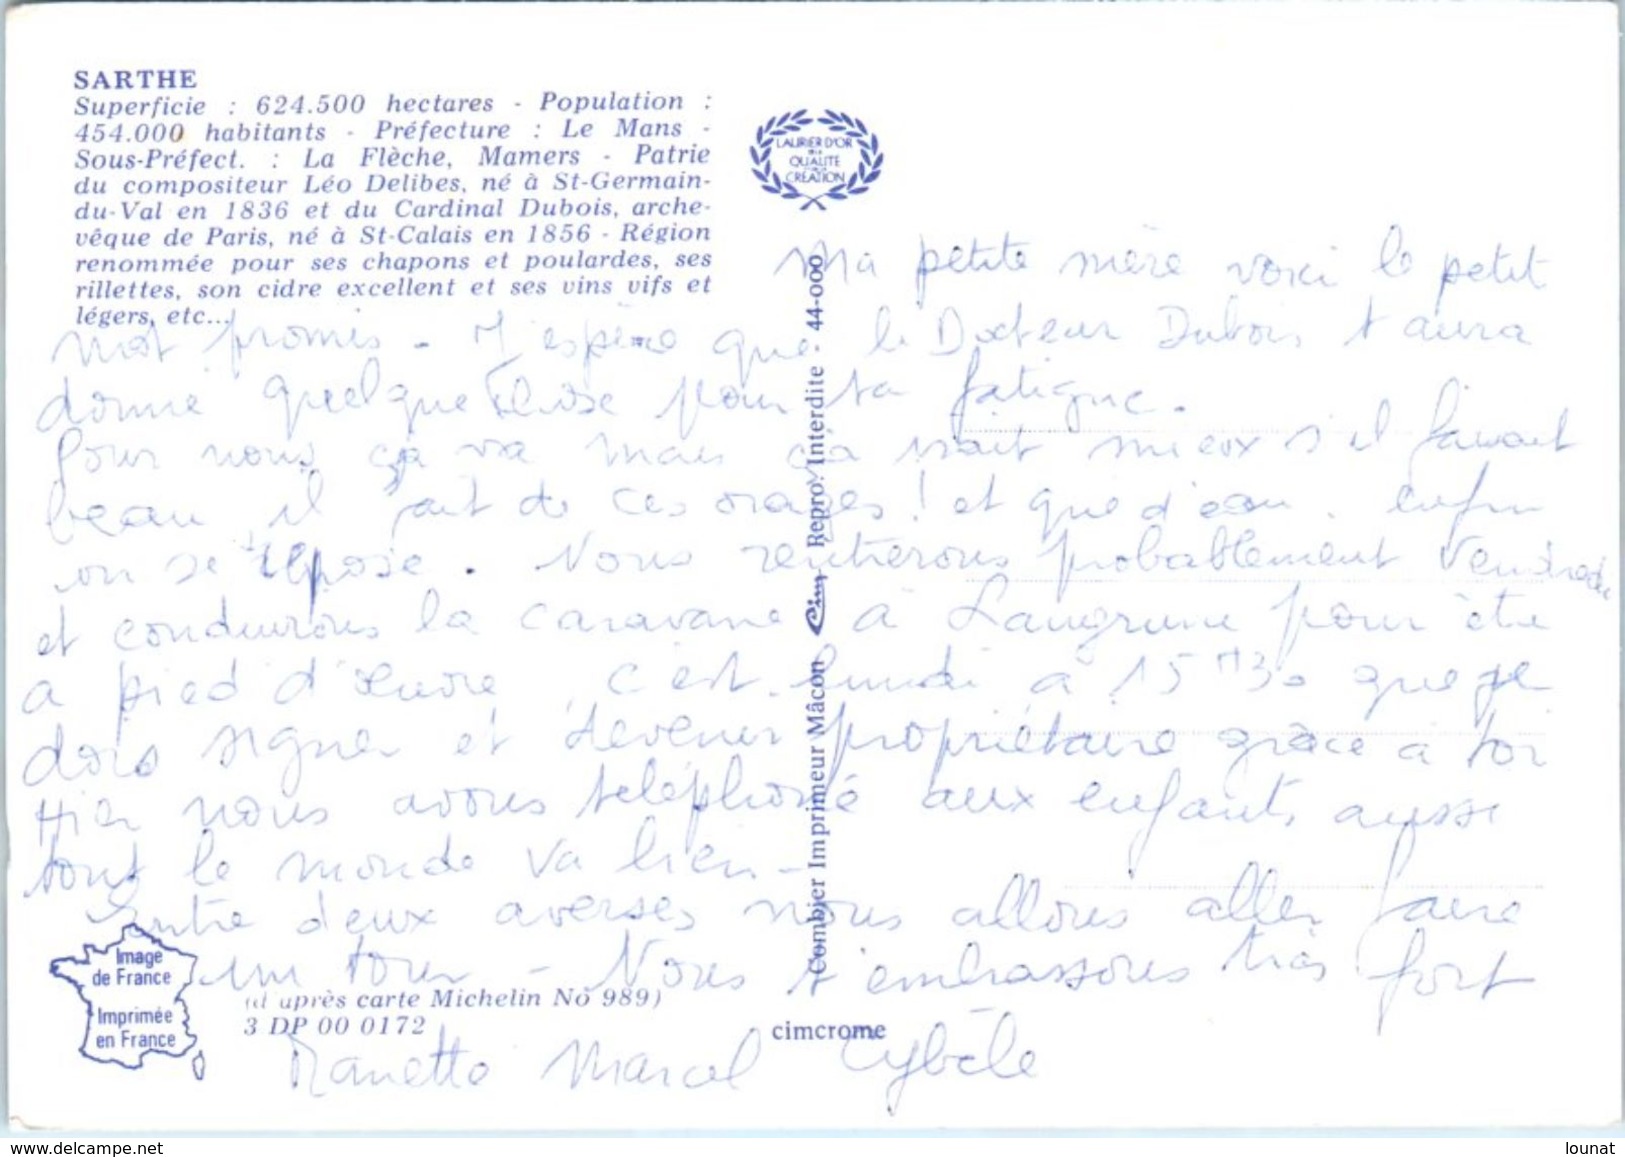 SARTHE
Superficie : 624.500 hectares - Population :
454.000 habitants - Préfecture : Le Mans -
Sous-Préfect. : La Flèche, Mamers - Patrie
du compositeur Léo Delibes, né à St-Germain-
du-Val en 1836 et du Cardinal Dubois, arche-
vêque de Paris, né à St-Calais en 1856 - Région
renommée pour ses chapons et poulardes, ses
rillettes, son cidre excellent et ses vins vifs et
légers, etc...
LAURIER D'OR
DE LA
QUALITE
CREATION
Ma petite mère voici le petit
mot promis - J'espère que le Docteur Dubois t'aura
donné quelque chose pour ta fatigue.
Pour nous ça va mais ça irait mieux s'il faisait
beau il fait de ces orages ! et que d'eau. enfin
on se repose. Nous rentrerons probablement Vendredi
et conduirons la caravane à Langrune pour être
a pied d'œuvre. C'est lundi à 15 H 30 que je
dois signer et devenir propriétaire grâce à toi
Hier nous avons téléphoné aux enfants aussi
tout le monde va bien -
Entre deux averses nous allons aller faire
un tour - Nous t'embrassons très fort
Manette Marcel Cybèle
Combier Imprimeur Mâcon Cim Repro. Interdite - 44-000
Image
de France
Imprimée
en France
(d'après carte Michelin No 989)
3 DP 00 0172
cimcrome
https://www.delcampe.net
lounat